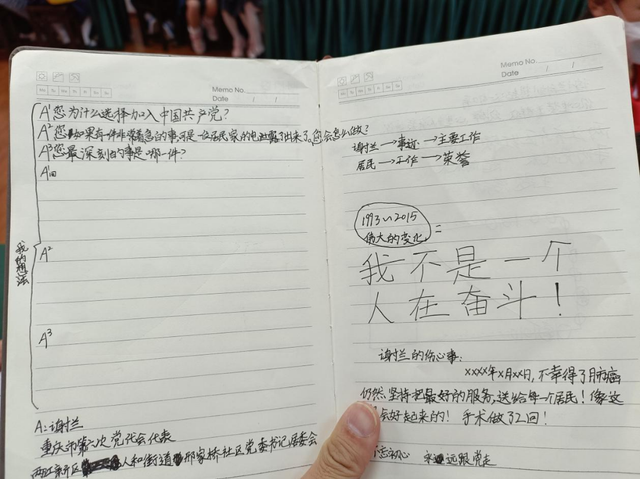 Memo No.
Date / /
A¹您为什么选择加入中国共产党?
A²您如果有一件非常着急的事,可是一位居民家的电线露了出来了,您会怎么做?
A³您最深刻的事是哪一件?
A¹
A²
A³
我的想法
A:谢兰
重庆市第六次党代会代表
两江新区人和街道邢家桥社区党委书记居委会
Memo No.
Date / /
谢兰→事迹→主要工作
居民→工作→荣誉
1993~2015
伟大的变化
=
我不是一个
人在奋斗!
谢兰的伤心事:
xxxx年x月xx日,不幸得了肺癌
仍然坚持把最好的服务,送给每一个居民!像这
点好起来的!手术做了2回!
忘初心 永远跟党走